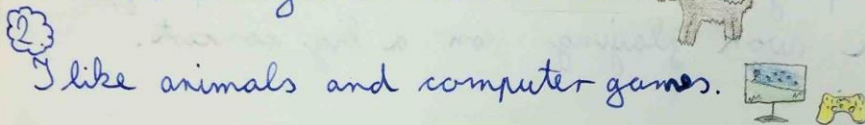 2.
I like animals and computer games.